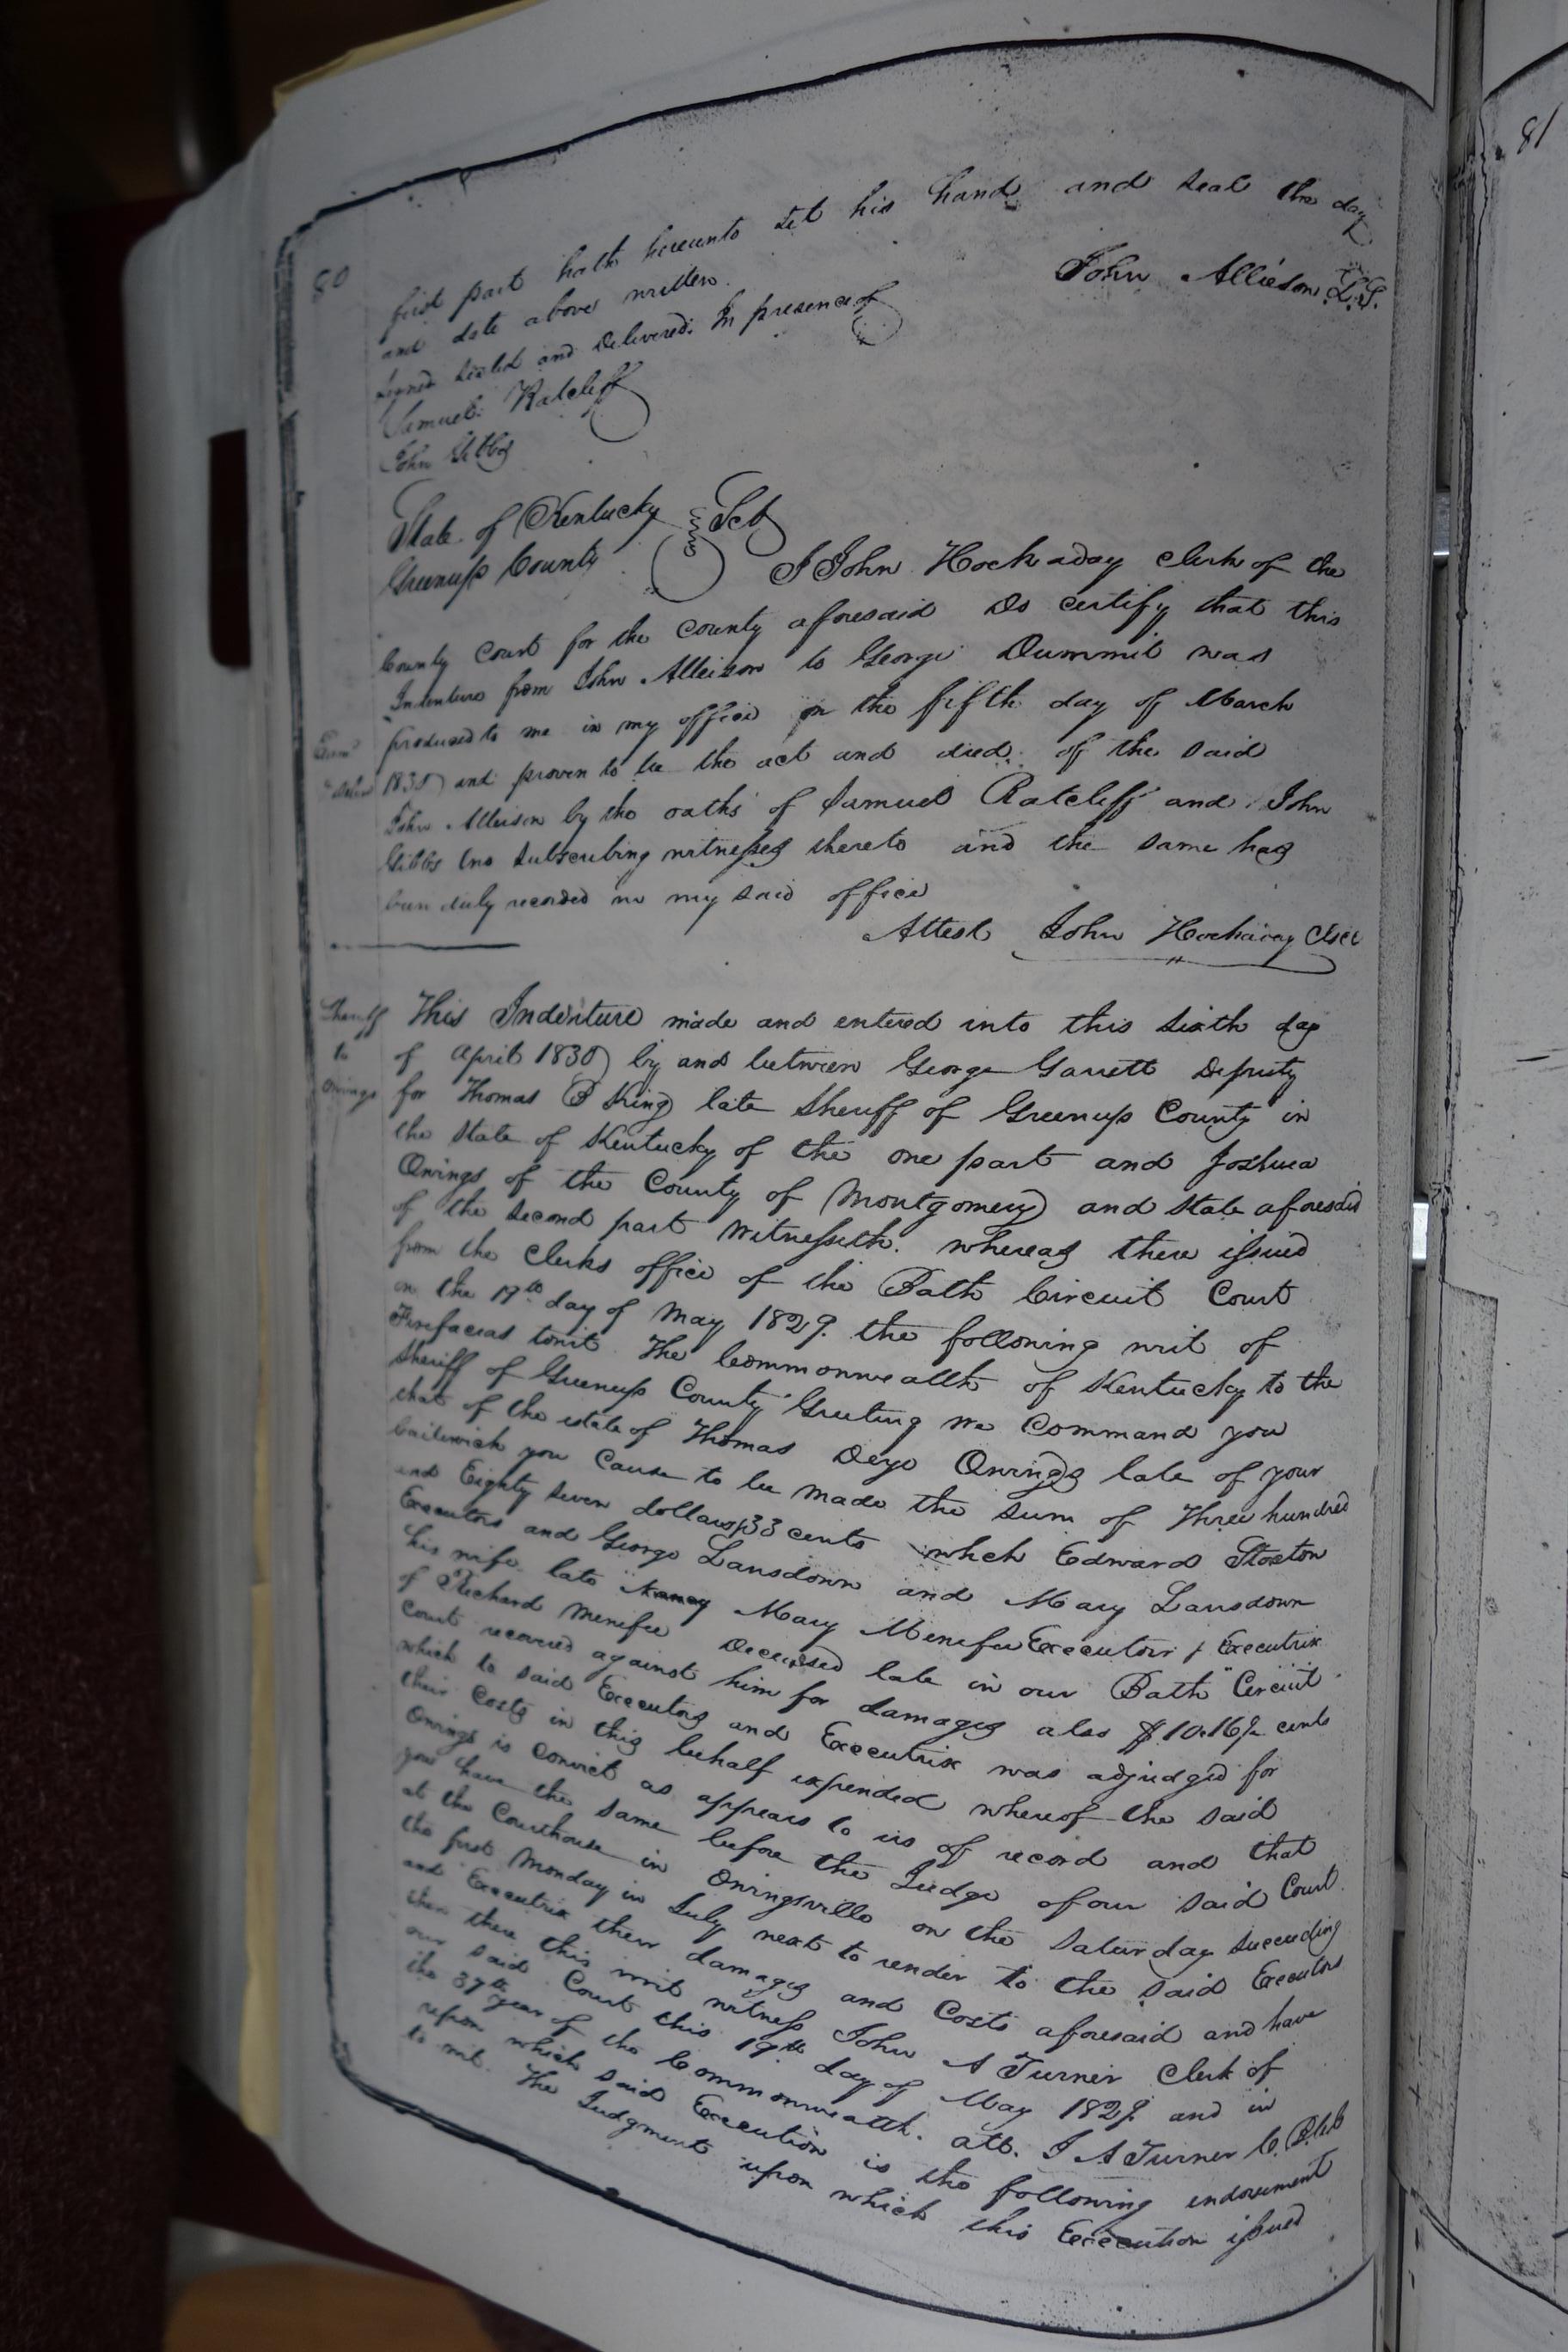 80
81
first part hath hereunto set his hand and seal the day
and date above written.
John Allison L.S.
signed sealed and Delivered. In presence of
Samuel Ratcliff
John Gibbs
State of Kentucky
Greenup County Sct
I John Hockaday clerk of the
County Court for the county aforesaid Do certify that this
Indenture from John Allison to George Dummit was
produced to me in my office on the fifth day of March
1830 and proven to be the act and deed of the said
John Allison by the oaths of Samuel Ratcliff and John
Gibbs two subscribing witnesses thereto and the same has
been duly recorded in my said office
Attest John Hockaday
Sheriff
to
Owings
This Indenture made and entered into this sixth day
of April 1830 by and between George Garrett Deputy
for Thomas B King late Sheriff of Greenup County in
the State of Kentucky of the one part and Joshua
Owings of the County of Montgomery and State aforesaid
of the second part Witnesseth. whereas there issued
from the Clerks office of the Bath Circuit Court
on the 19th day of May 1829. the following writ of
Firefacias towit The Commonwealth of Kentucky to the
Sheriff of Greenup County Greeting we Command you
that of the estate of Thomas Deye Owings late of your
bailiwick you Cause to be made the sum of Three hundred
and Eighty seven dollars 33 cents which Edward Stoxton
Executors and George Lansdown and Mary Lansdown
his wife late Nancy Mary Menefee Executor & Executrix
of Richard Menefee Deceased late in our Bath Circuit
Court recovered against him for damages also $10.16½ cents
which to said Executors and Executrix was adjudged for
their Costs in this behalf expended whereof the said
Owings is convict as appears to us of record and that
you have the same before the Judge of our said Court
at the Courthouse in Owingsville on the Saturday succeeding
the first Monday in July next to render to the said Executors
and Executrix their damages and Costs aforesaid and have
then there this writ witness John A Turner Clerk of
our said Court this 19th day of May 1829 and in
the 37th year of the Commonwealth. att. J A Turner
upon which said Execution is the following endorsement
to wit. The Judgment upon which this Execution issued